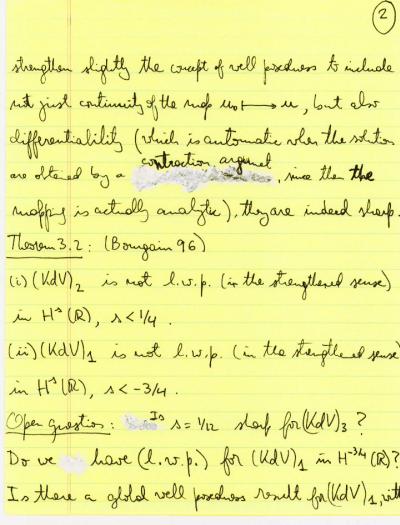 2
strengthen slightly the concept of well posedness to include
not just continuity of the map u₀ ⟼ u, but also
differentiability (which is automatic when the solutions
are obtained by a contraction argument, since then the
mapping is actually analytic), they are indeed sharp.
Theorem 3.2: (Bourgain 96)
(i) (KdV)₂ is not l.w.p. (in the strengthened sense)
in Hˢ(ℝ), s < 1/4.
(ii) (KdV)₁ is not l.w.p. (in the strengthened sense)
in Hˢ(ℝ), s < -3/4.
Open question: Is s = 1/12 sharp for (KdV)₃ ?
Do we have (l.w.p.) for (KdV)₁ in H⁻³ᐟ⁴(ℝ)?
Is there a global well posedness result for (KdV)₁, with